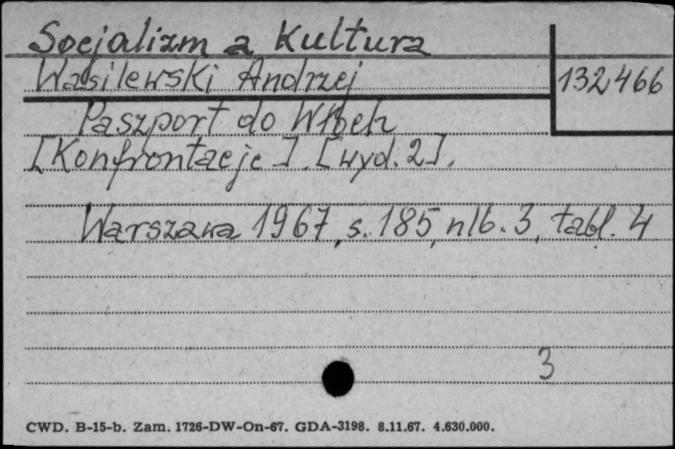 Socjalizm a Kultura
Wasilewski Andrzej
132466
Paszport do Włoch
[Konfrontacje]. [wyd. 2].
Warszawa 1967, s. 185, nlb. 3, tabl. 4
3
CWD. B-15-b. Zam. 1726-DW-On-67. GDA-3198. 8.11.67. 4.630.000.